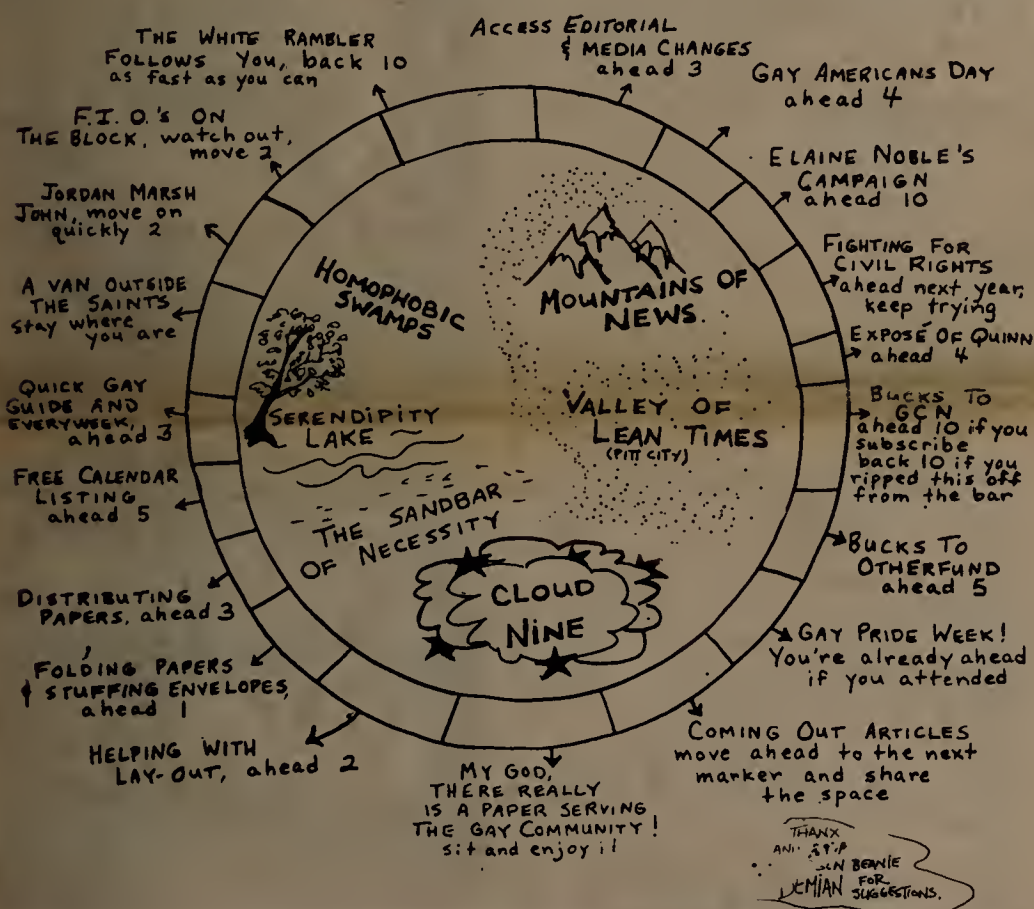 THE WHITE RAMBLER
FOLLOWS YOU, back 10
as fast as you can
ACCESS EDITORIAL
& MEDIA CHANGES
ahead 3
GAY AMERICANS DAY
ahead 4
ELAINE NOBLE'S
CAMPAIGN
ahead 10
FIGHTING FOR
CIVIL RIGHTS
ahead next year,
keep trying
EXPOSÉ OF QUINN
ahead 4
BUCKS TO
GCN
ahead 10 if you
subscribe
back 10 if you
ripped this off
from the bar
BUCKS TO
OTHERFUND
ahead 5
GAY PRIDE WEEK!
You're already ahead
if you attended
COMING OUT ARTICLES
move ahead to the next
marker and share
the space
MY GOD,
THERE REALLY
IS A PAPER SERVING
THE GAY COMMUNITY!
sit and enjoy it
HELPING WITH
LAY-OUT, ahead 2
FOLDING PAPERS
& STUFFING ENVELOPES,
ahead 1
DISTRIBUTING
PAPERS, ahead 3
FREE CALENDAR
LISTING
ahead 5
QUICK GAY
GUIDE AND
EVERYWEEK,
ahead 3
A VAN OUTSIDE
THE SAINTS
stay where
you are
JORDAN MARSH
JOHN, move on
quickly 2
F.I.O.'s ON
THE BLOCK, watch out,
move 2
HOMOPHOBIC
SWAMPS
MOUNTAINS OF
NEWS.
SERENDIPITY
LAKE
VALLEY OF
LEAN TIMES
(PITT CITY)
THE SANDBAR
OF NECESSITY
CLOUD
NINE
THANX
BEANIE
FOR
SUGGESTIONS.